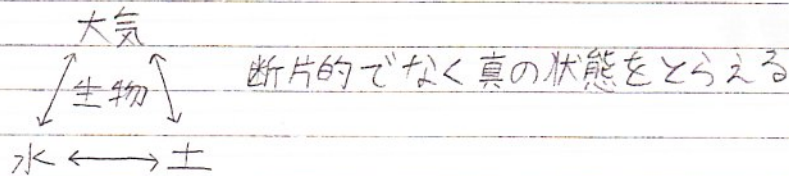 大気
生物 断片的でなく真の状態をとらえる
水 ⟷ 土